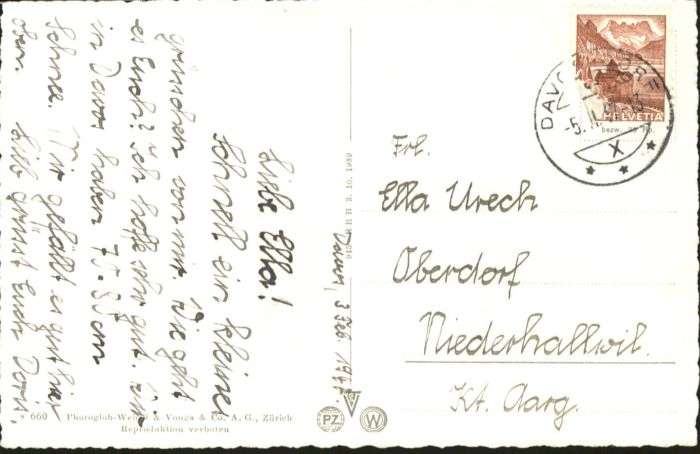 Liebe Ella!
Schnell ein kleines
grüsschen von mir. Wie geht
es Euch? Ich hoffe sehr gut. Wir
in Davos haben 75-80 cm
Schnee. Mir gefällt es gut hier
oben. Lieb grüsst Euch Doris.
Davos, 3 Feb. 1941.
Frl.
Ella Urech
Oberdorf
Niederhallwil.
Kt. Aarg.
HELVETIA
DAVOS DORF
X
915 B R B 3. 10. 1939
660 Photoglob-Wehrli & Vouga & Co. A. G., Zürich
Reproduktion verboten
PZ
W